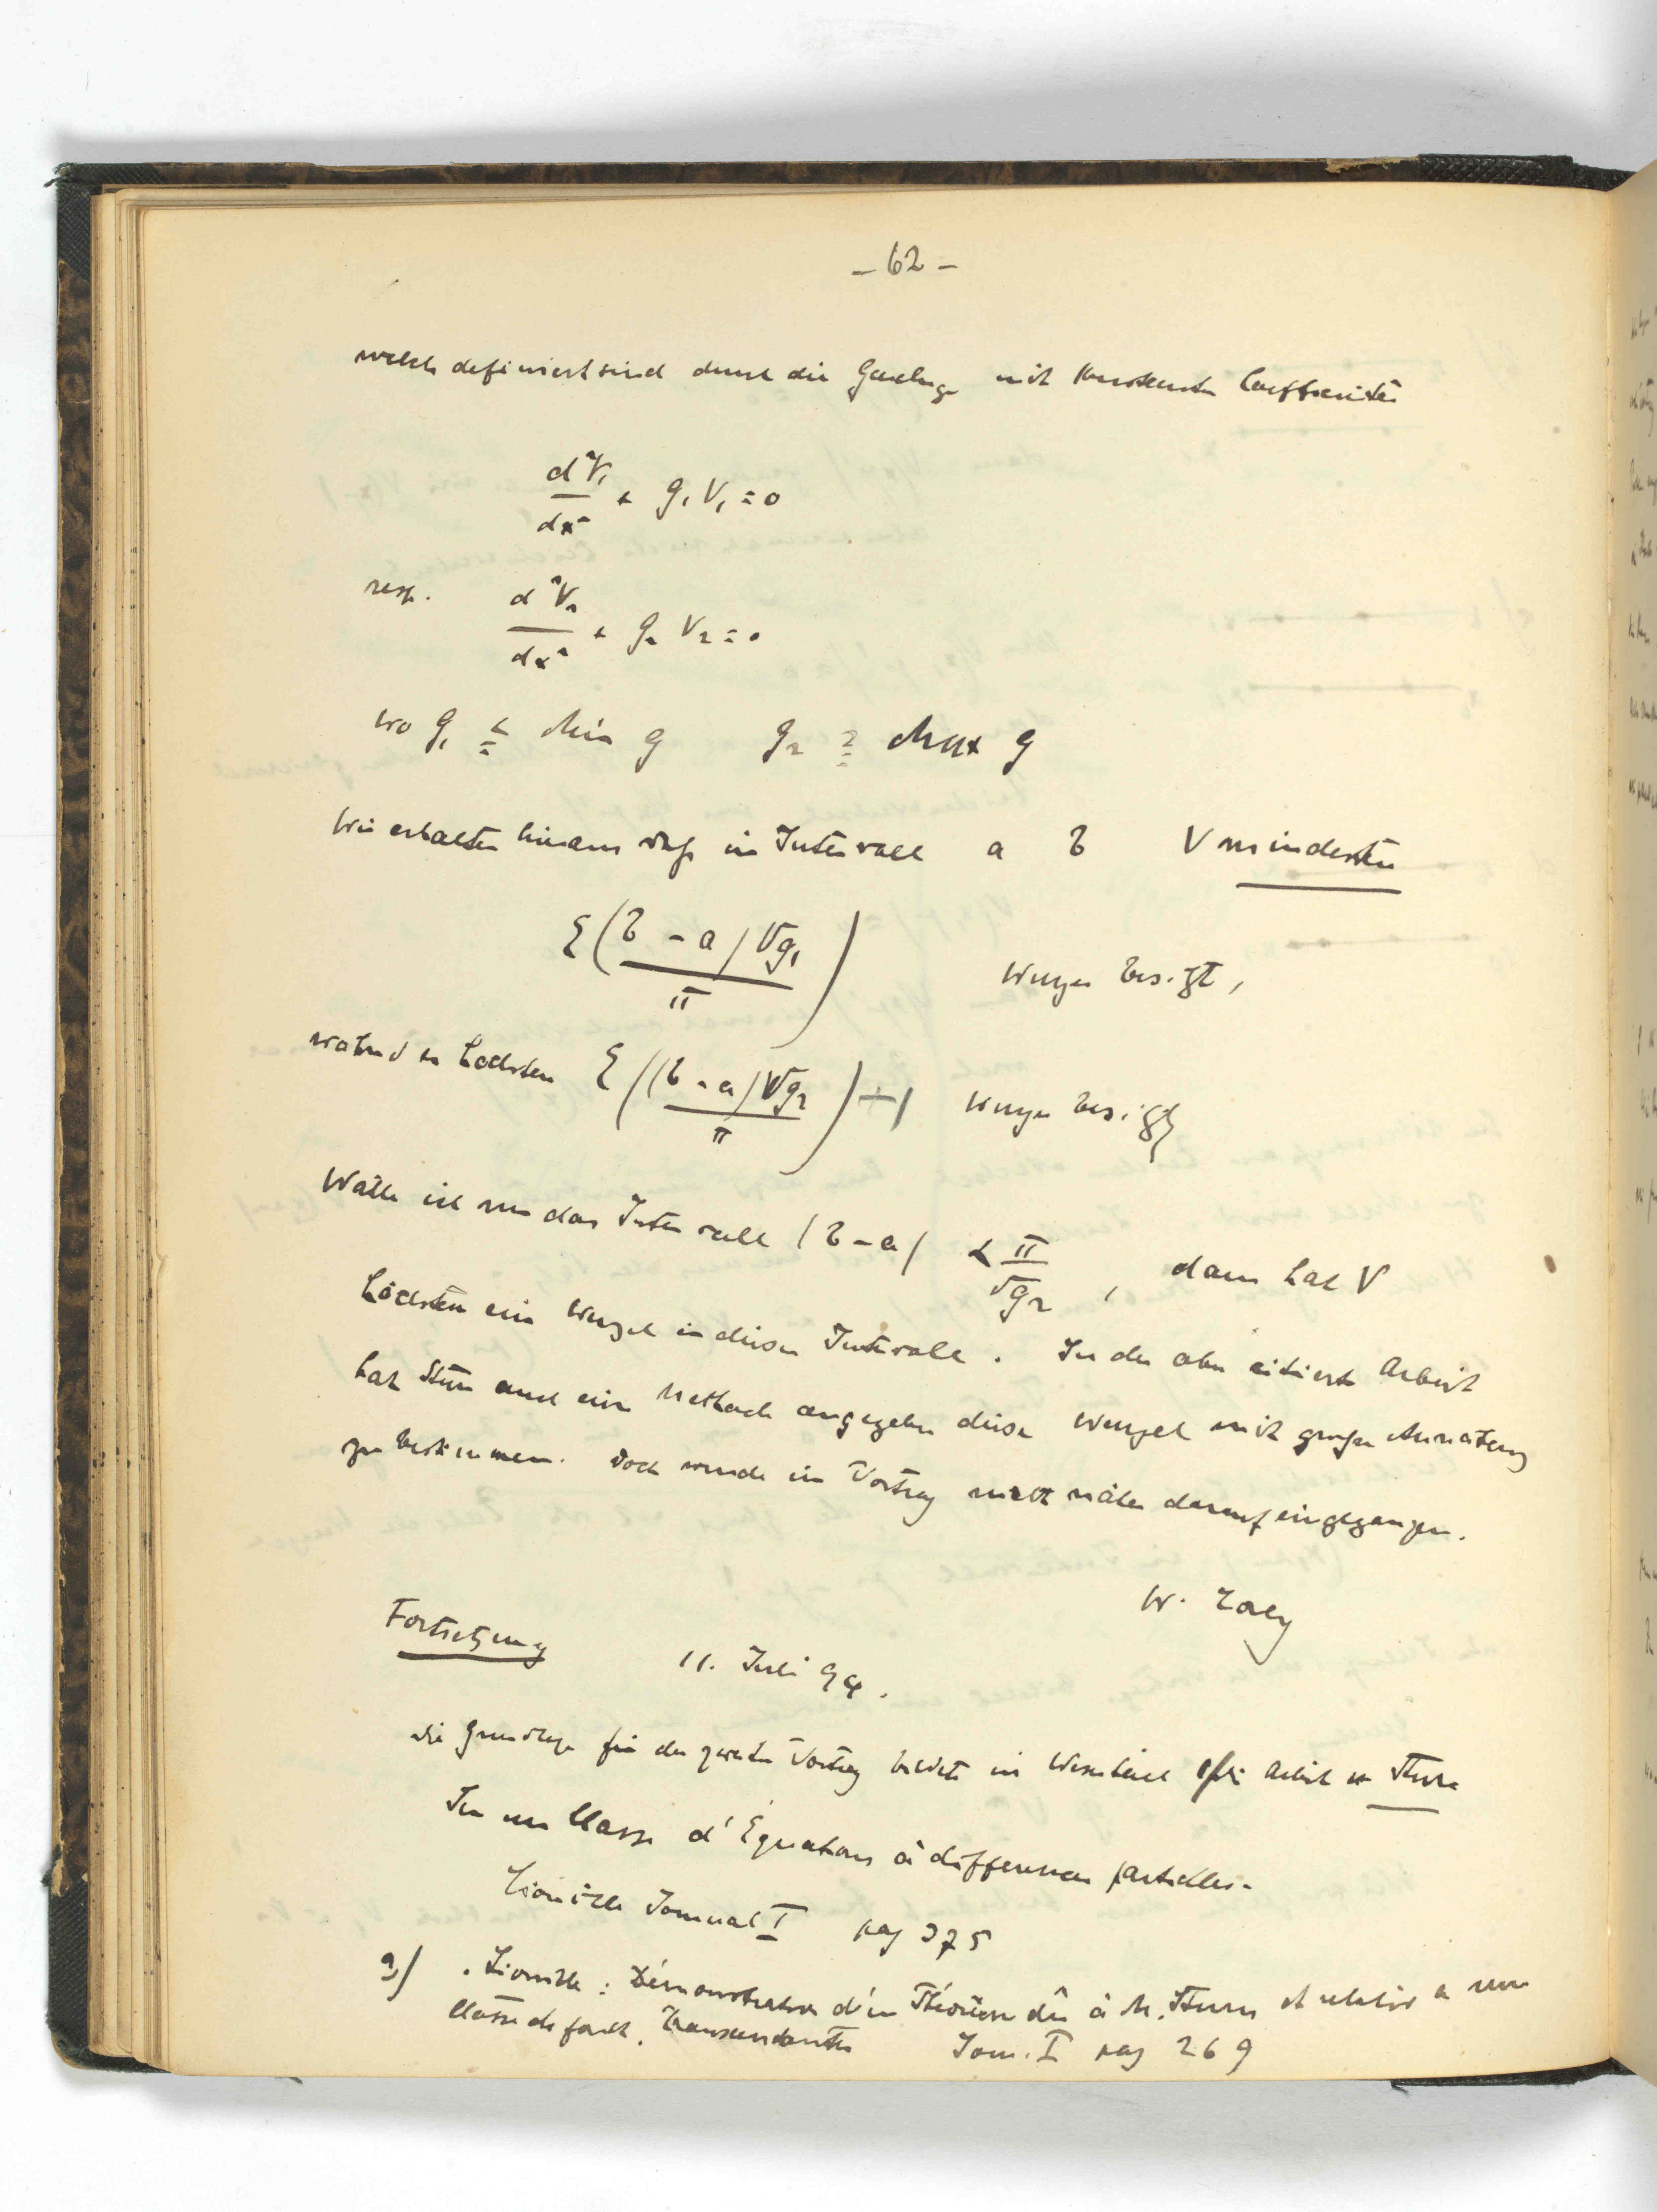 - 62 -
welche definiert sind durch die mit konstanten Coefficienten
d²V₁/dx² + g₁ V₁ = 0
resp. d²V₂/dx² + g₂ V₂ = 0
wo g₁ ≦ Min g g₂ ≧ Max g
Wir erhalten hieraus daß im Intervall a b V mindestens
E((b - a) √g₁ / π) Wurzeln besitzt,
während sie höchsten E((b - a) √g₂ / π) + 1 Wurzeln besitzt
Wähle ich nun das Intervall (b - a) < π/√g₂, dann hat V
höchsten eine Wurzel in diesem Intervall. In der oben citierten Arbeit
hat Sturm auch eine Methode angegeben diese Wurzel mit großer Annäherung
zu bestimmen. Doch wurde im Vortrag nicht näher darauf eingegangen.
W. Lorey
Fortsetzung 11. Juli 94.
Die Grundlage für den zweiten Vortrag bildete im Wesentlichen Arbeit von Sturm
Sur une Classe d'Equations à differences partielles.
Liouville Journal I pag 375
2) Liouville: Démonstration d'un Théorème dû à M. Sturm et relatif à une
classe de fonct. transcendantes Jour. I pag 269